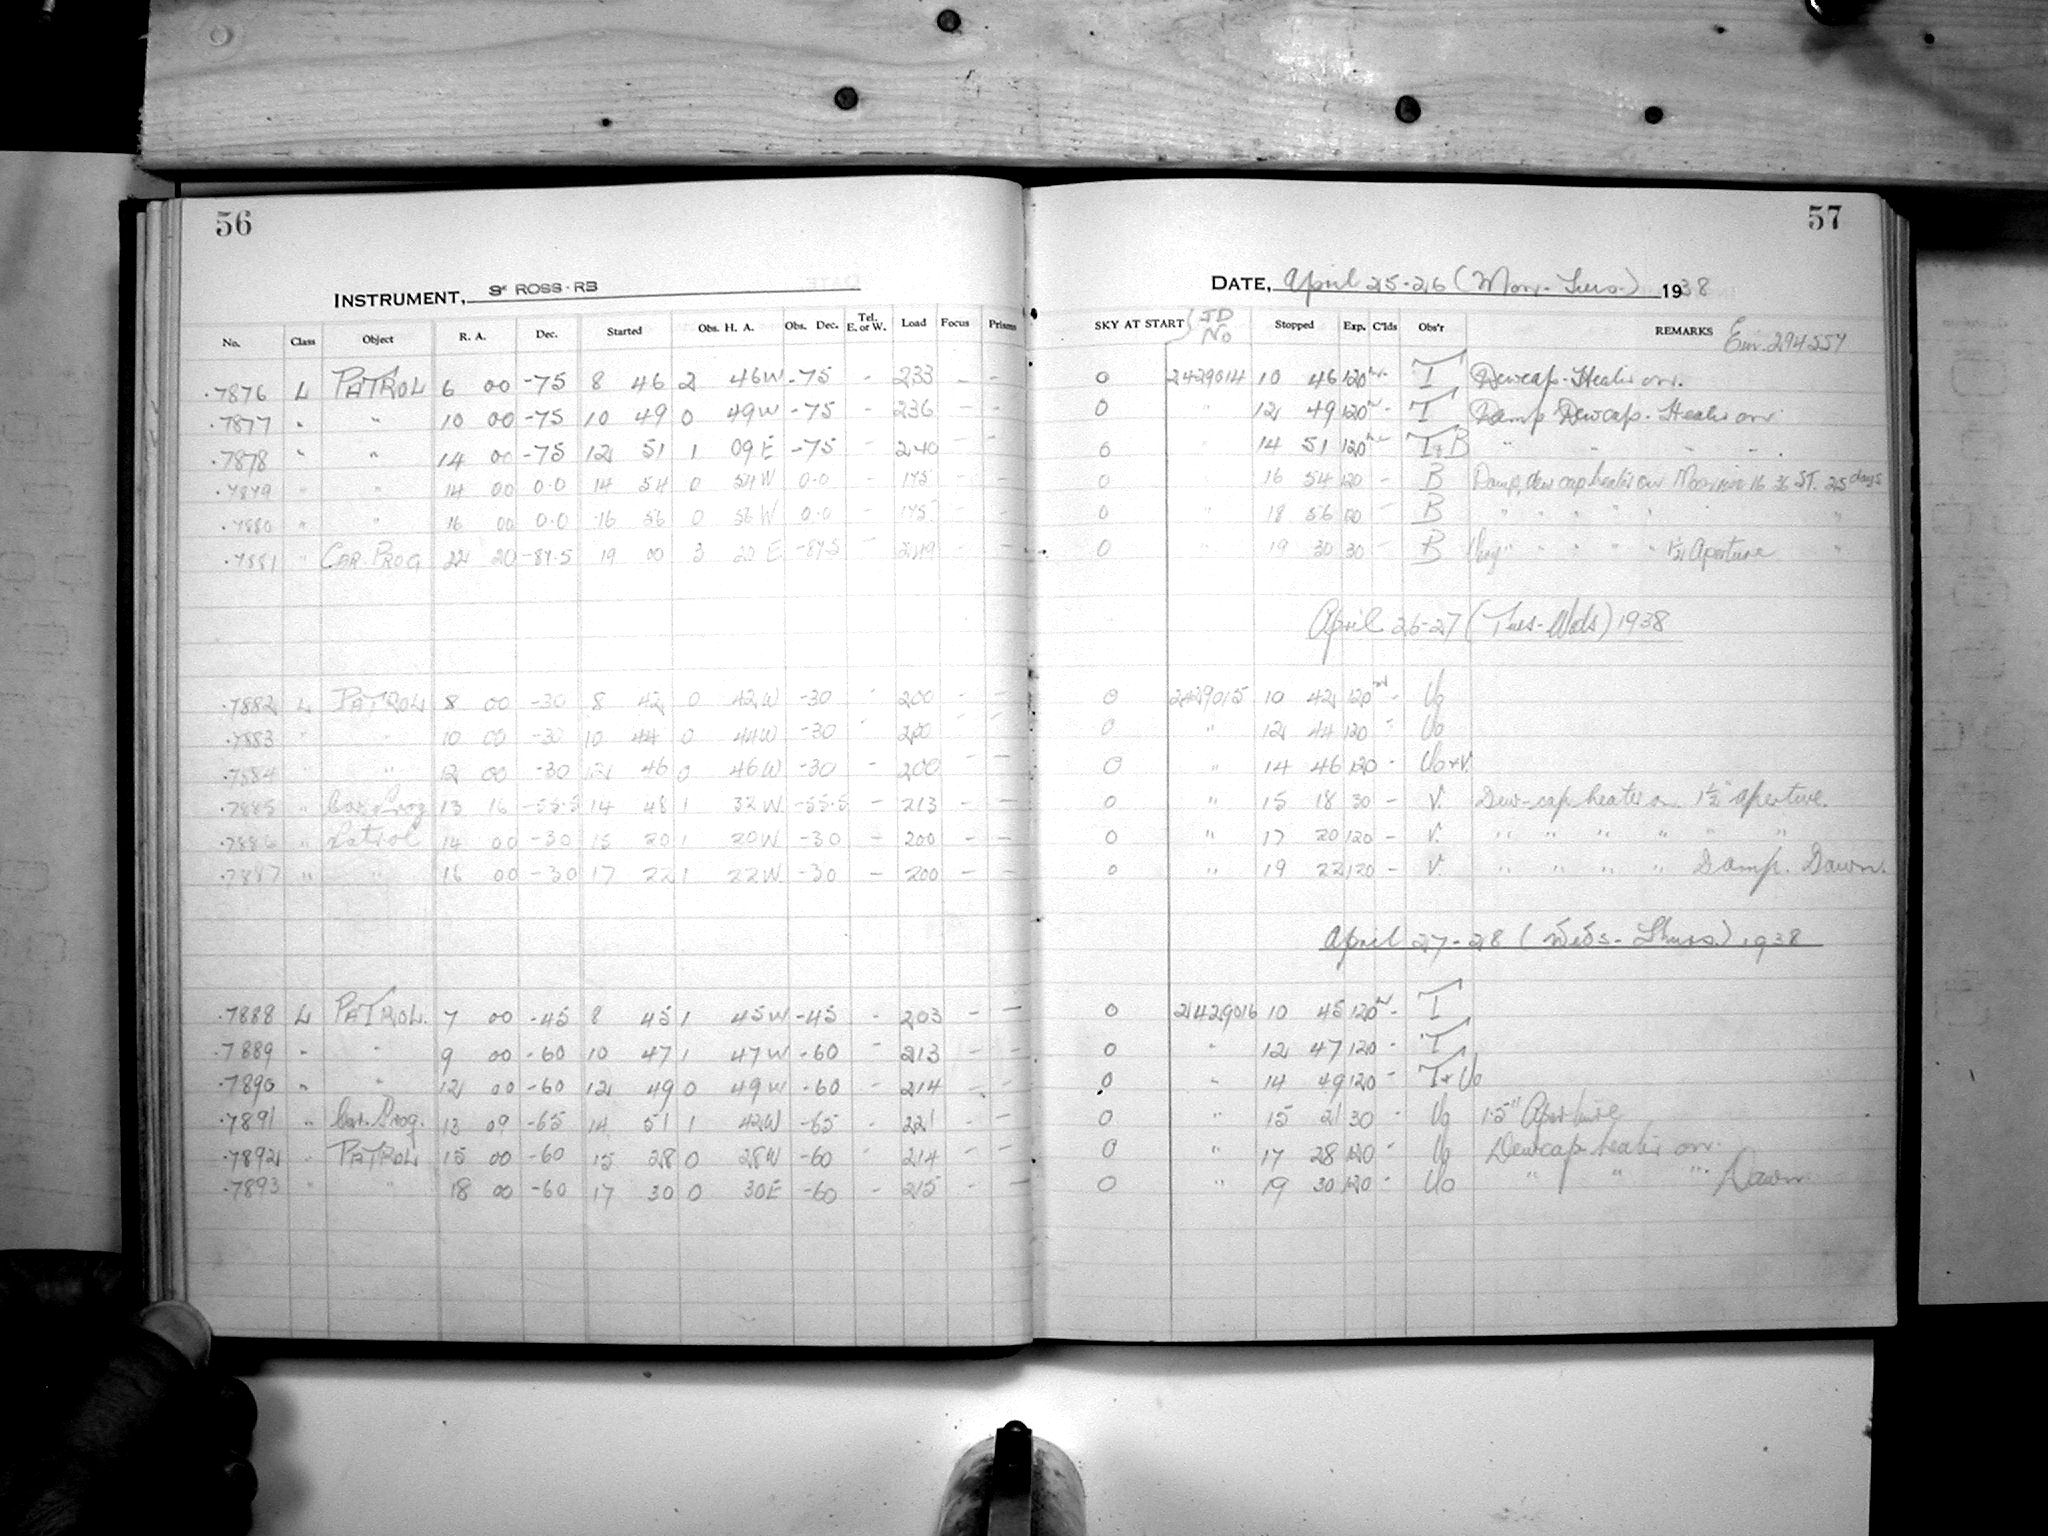 56
57
INSTRUMENT, 3" ROSS-RB
DATE, April 25-26 (Mon.-Tues.) 1938
No. Class Object R. A. Dec. Started Obs. H. A. Obs. Dec. Tel. E. or W. Load Focus Prisms SKY AT START JD No Stopped Exp. C'lds Obs'r REMARKS Em. 294554
.7876 L PATROL 6 00 -75 8 46 2 46W -75 - 233 - - 0 2429014 10 46 120 - T Dewcap-Heater on.
.7877 " " 10 00 -75 10 49 0 49W -75 - 236 - - 0 " 12 49 120 - T Damp Dewcap. Heater on.
.7878 " " 14 00 -75 12 51 1 09E -75 - 240 - - 0 " 14 51 120 - T+B " - - -
.7879 " " 14 00 0.0 14 54 0 54W 0.0 - 175 - - 0 " 16 54 120 - B Damp, dew cap heater on Moonrise 16 36 ST. 25 days
.7880 " " 16 00 0.0 16 56 0 56W 0.0 - 175 - - 0 " 18 56 120 - B " " " " " " "
.7881 " CAR. PROG 22 20 -87.5 19 00 3 20 E -87.5 - 249 - - 0 " 19 30 30 - B " " " " 1½ Aperture "
April 26-27 (Tues-Weds) 1938
.7882 L PATROL 8 00 -30 8 42 0 42W -30 - 200 - - 0 2429015 10 42 120 - Uo
.7883 " " 10 00 -30 10 44 0 44W -30 - 200 - - 0 " 12 44 120 - Uo
.7884 " " 12 00 -30 12 46 0 46W -30 - 200 - - 0 " 14 46 120 - Uo+V.
.7885 " Car. Prog 13 16 -55.5 14 48 1 32W -55.5 - 213 - - 0 " 15 18 30 - V. Dew-cap heater on. 1½" aperture.
.7886 " Patrol 14 00 -30 15 20 1 20W -30 - 200 - - 0 " 17 20 120 - V. " " " " " "
.7887 " " 16 00 -30 17 22 1 22W -30 - 200 - - 0 " 19 22 120 - V. " " " " Damp. Dawn.
April 27-28 (Weds-Thurs.) 1938
.7888 L PATROL. 7 00 -45 8 45 1 45W -45 - 203 - - 0 2429016 10 45 120 - T
.7889 " " 9 00 -60 10 47 1 47W -60 - 213 - - 0 " 12 47 120 - T
.7890 " " 12 00 -60 12 49 0 49W -60 - 214 - - 0 " 14 49 120 - T+Uo
.7891 " Car. Prog. 13 09 -65 14 51 1 42W -65 - 221 - - 0 " 15 21 30 - Uo 1.5" Aperture
.7892 " PATROL 15 00 -60 15 28 0 28W -60 - 214 - - 0 " 17 28 120 - Uo Dewcap heater on.
.7893 " " 18 00 -60 17 30 0 30E -60 - 215 - - 0 " 19 30 120 - Uo " " " Dawn.